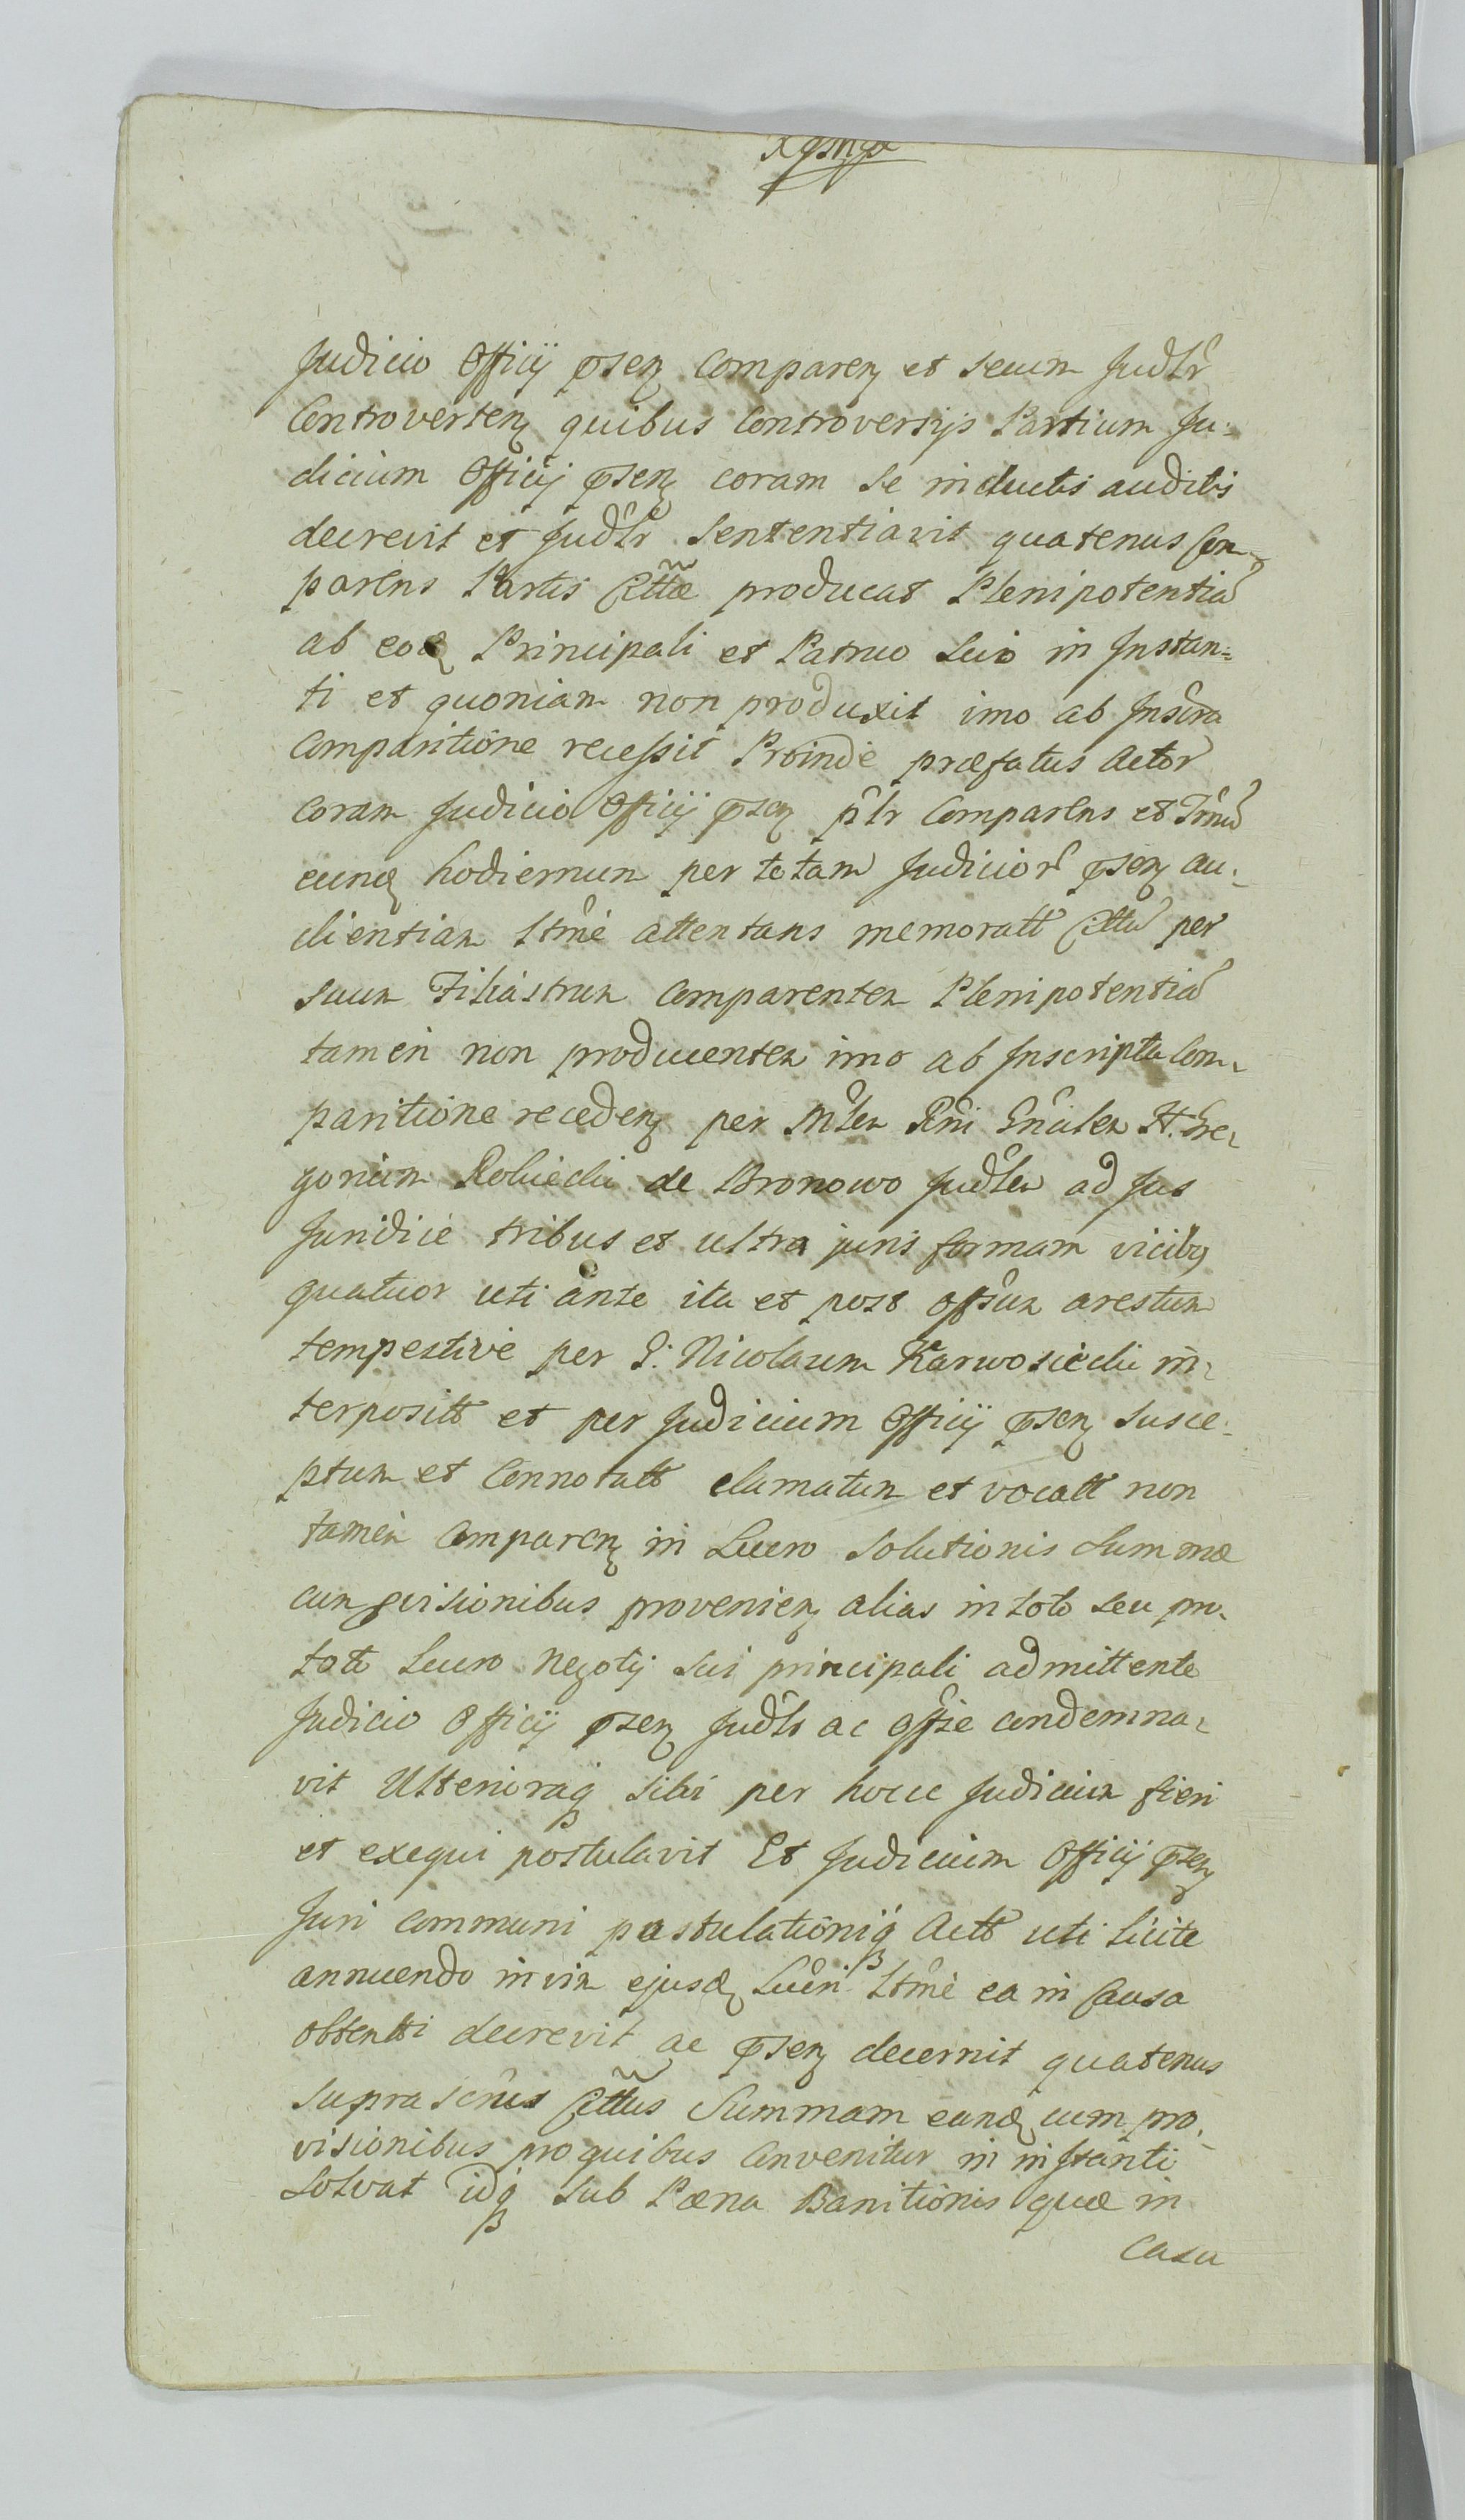 Judicio Officij psen Comparen et secum Judlr
Controverten quibus Controversijs Partium Ju-
dicium Officij psen coram se inductis auditis
decrevit et Judlr Sententiavit quatenus Com-
parens Partis Cittæ producat Plenipotentia
ab eod Principali et Patruo Suo in Instan=
ti et quoniam non produxit imo ab Inscra
Comparitione recessit Proinde præfatus Actor
coram Judicio Officij psen plr Comparens et Trnu
eund hodiernum per totam Judicior psen au-
dientiam ltme attentans memoratt Cittu per
suum Filiastrum Comparentem Plenipotentia
tamen non producentem imo ab Inscripta Com-
paritione receden per Mlem Rni Gnalem H. Gre-
gorium Robiecki de Bronowo Judlem ad Jus
Juridice tribus et ultra juris formam vicibus
quatuor uti ante ita et post offum arestum
tempestive per G. Nicolaum Karwosiecki in-
terpositt et per Judicium Officij psen susce-
ptum et Connotatt clamatum et vocatt non
tamen Comparen in Lucro Solutionis Summæ
cum pvisionibus provenien alias in toto seu pro
toto Lucro Negotij sui principali admittente
Judicio Officij psen Judlr ac offse condemna-
vit Ulterioraq sibi per hocce Judicium fieri
et exequi postulavit Et Judicium Officij psen
Juri communi postulationiq Actt uti licite
annuendo in vim ejusd Lucri ltme ea in Causa
obtentti decrevit ac psen decernit quatenus
suprascrus Cittus Summam eand cum pro-
visionibus pro quibus Convenitur in instanti
solvat idq sub Pæna Banitionis quæ in
Casu